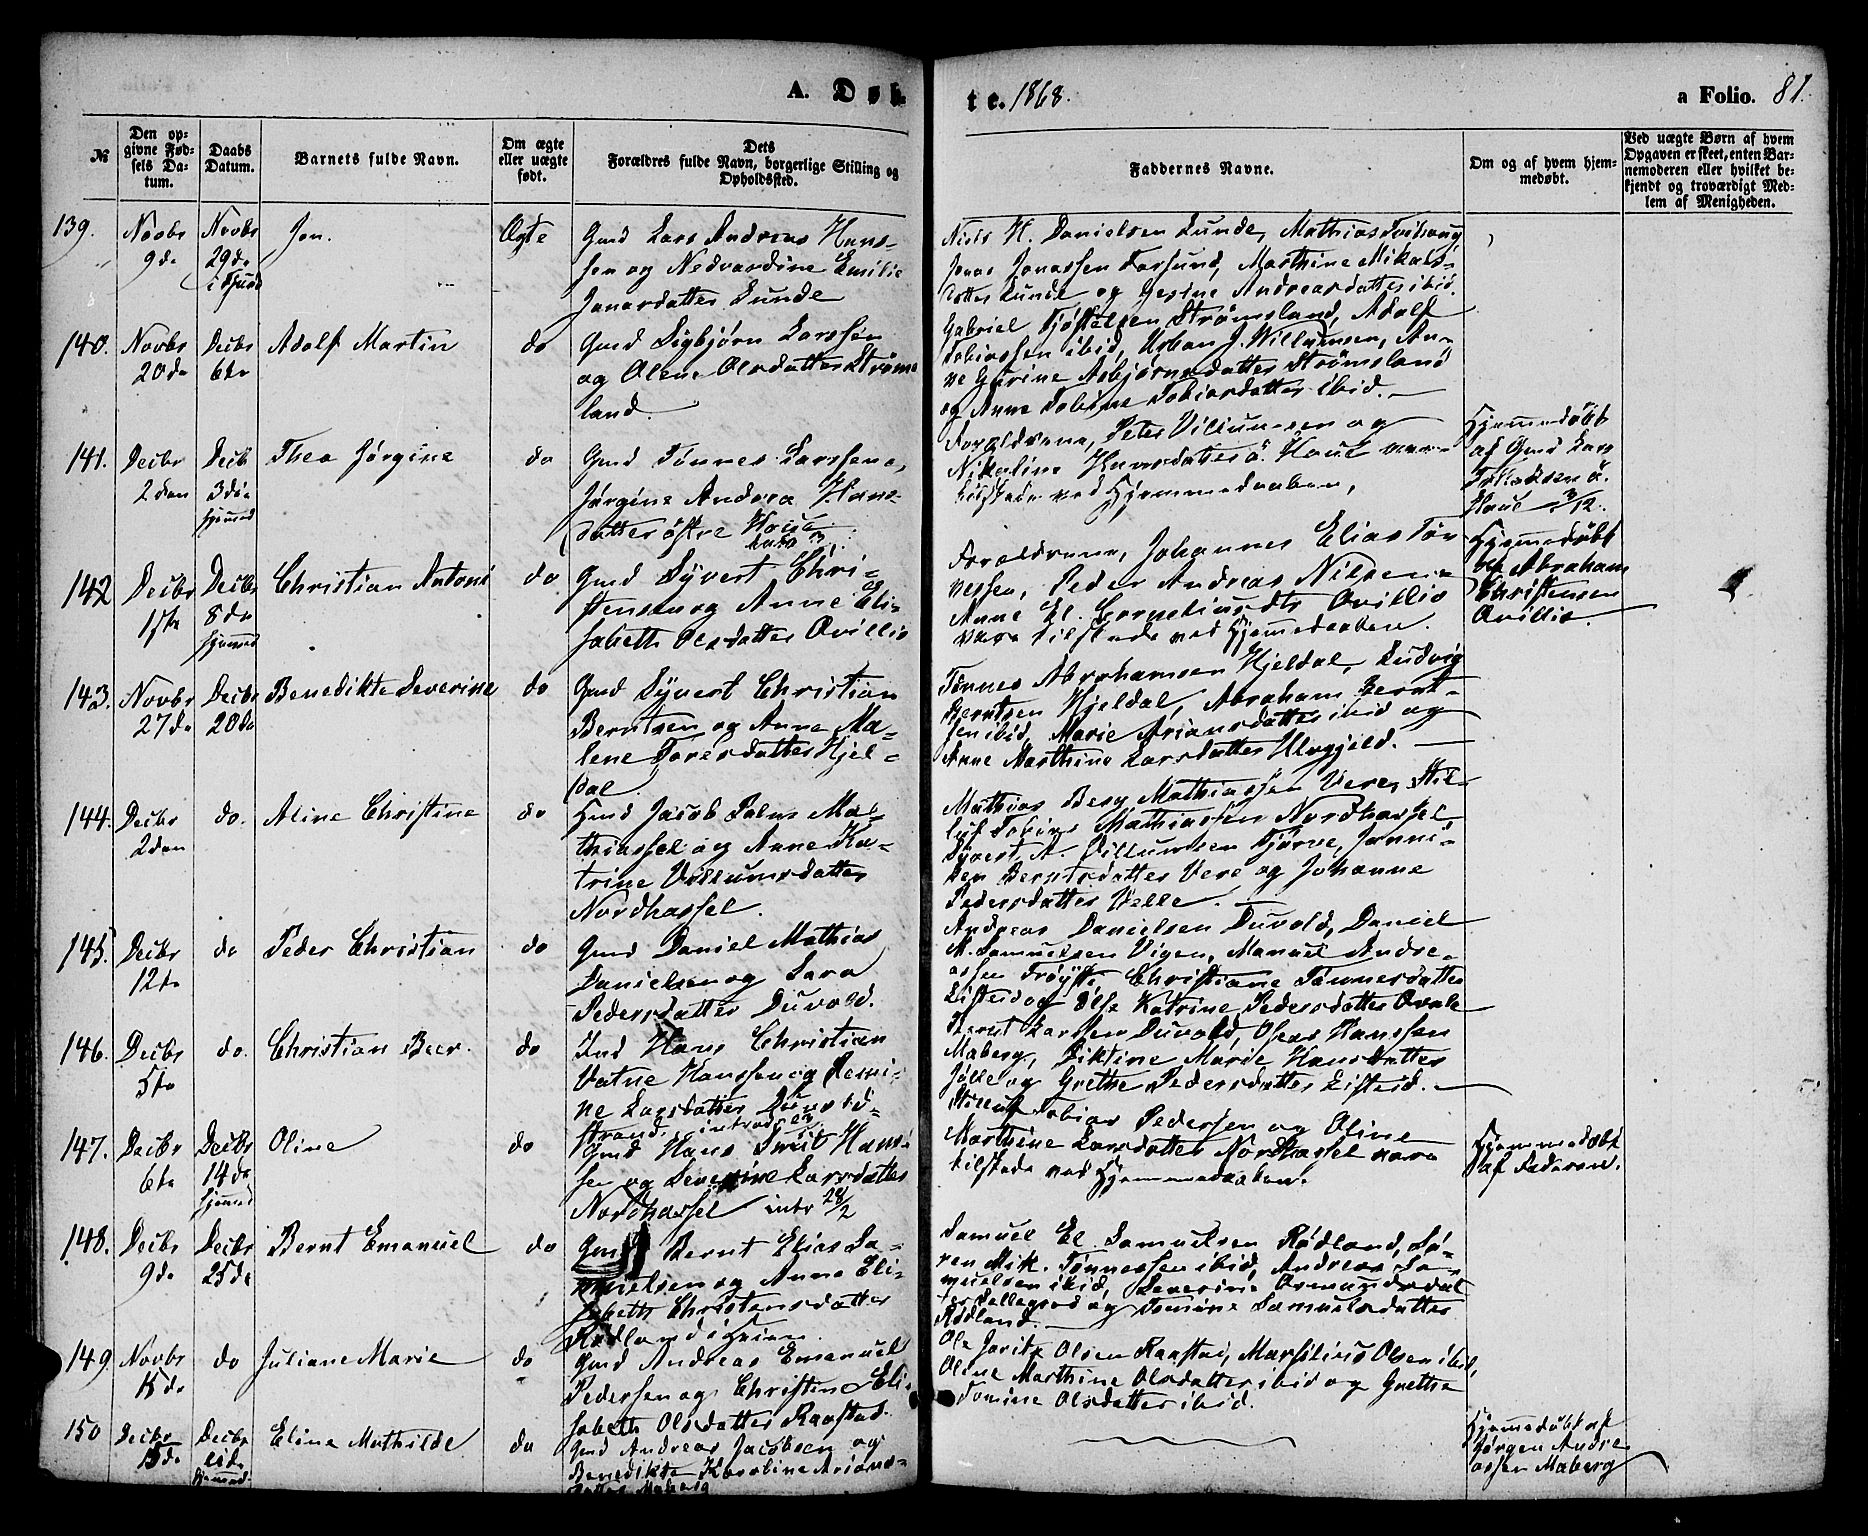 A. Døb
te. 1868.
a Folio. 81.
№
Den op-
givne Fød-
sels Da-
tum.
Daabs
Datum.
Barnets fulde Navn.
Om ægte
eller uægte
født.
Dets
Forældres fulde Navn, borgerlige Stilling og
Opholdssted.
Faddernes Navne.
Om og af hvem hjem-
medøbt.
Ved uægte Børn af hvem
Opgaven er skeet, enten Bar-
nemoderen eller hvilket be-
kjendt og troværdigt Med-
lem af Menigheden.
139.
Novbr
9de
Novbr
29de
Jon.
Ægte
Gmd Lars Andreas Hans-
sen og Nedvardine Emilie
Janasdatter Lunde
Niels H. Danielsen Lunde, Mathias
Jonas Jonassen Farsund, Marthine Mikals-
datter Lunde og Gesine Andreasdatter ibid.
140.
Novbr
20de
Decbr
6te
Adolf Martin
do
Gmd Sigbjørn Larssen
og Olene Olsdatter Strøms-
land.
Gabriel Tjøstelsen Strømsland, Adolf
Tobiassen ibid, Urban J. Willumsen, An-
ne Gurine Asbjørnsdatter Strømsland
og Anne Tobine Tobiasdatter ibid.
141.
Decbr
2den
Decb
3die
hjemmed
Thea Jørgine
do
Gmd Tønnes Larssen og
Jørgine Andrea Hans-
datter østre Haue
Forældrene, Peter Villumsen og
Nikoline Hansdatter ö. Haue vare
tilstede ved Hjemmedaaben,
Hjemmedøbt
af Gmd Lars
ö.
Haue 3/12.
142
Decbr
1ste
Decbr
8de
hjemmed
Christian Antoni
do
Gmd Syvert Chri-
stensen og Anne Eli-
sabeth Olsdatter Ovillie
Forældrene, Johannes Elias Tøn
nessen, Peder Andreas Nilsen
Anne El. Corneliusdtr Ovillie
vare tilstede ved Hjemmedaaben.
Hjemmedøbt
af Abraham
Christensen
Ovillie.
143.
Novbr
27de
Decbr
20de
Benedikte Severine
do
Gmd Syvert Christian
Berntsen og Anne Ma-
lene Toresdatter Hjel-
dal
Tønnes Abrahamsen Hjeldal, Ludvig
Berntsen Hjeldal, Abraham Bernt-
sen ibid, Marie Ariansdatter ibid og
Anne Marthine Larsdatter Ulvgjeld.
144.
Decbr
2den
do.
Aline Christine
do
Hmd Jacob Palm Ma-
thiassel og Anne Ka-
trine Villumsdatter
Nordhassel.
Mathias Berg Mathiassen Vere, Stil-
luf Tobias Mathiassen Nordhassel
Syvert A. Villumsen Tjørve, Janni-
ken Berntsdatter Vere og Johanne
Pedersdatter Velle.
145.
Decbr
12te
do
Peder Christian
do
Gmd Daniel Mathias
Danielsen og Sara
Pedersdatter Duvold.
Andreas Danielsen Duvold, Daniel
M. Samuelsen Vigen, Manuel Andre-
assen, Christiane Tønnesdatter
Listeid og Else Katrine Pedersdatter
146.
Decbr
5te
do.
Christian Beer.
do
Ind Hans Christian
Vatne Hanssen og Semi-
ne Larsdatter Duvold-
strand. introd.
Bernt Larssen Duvold, Hanssen
Maberg, Diktine Marie Hansdatter
Jølle og Grethe Pedersdatter Listeid.
147.
Decbr
6te
Decbr
14de
hjemmed
Oline
do
Gmd Hans Smit Hans-
sen og Severine Larsdatter
Nordhassel intr 28/2
Stilluf Tobias Pedersen og Oline
Marthine Larsdatter Nordhassel vare
tilstede ved Hjemmedaaben.
Hjemmedøbt
af Faderen.
148.
Decbr
9de
Decbr
25de
Bernt Emanuel
do
Gmd Bernt Elias Sa-
muelsen og Anne Eli-
sabeth Christensdatter
Rødland
Samuel El. Samuelsen Rødland, Sø-
ren Mik. Tønnessen ibid, Andreas Sa-
muelsen ibid, Severine Osmundsdat
ter og Tomine Samuelsdatter
Rødland.
149.
Novbr
15de
do
Juliane Marie
do
Gmd Andreas Emanuel
Pedersen og Christine Eli-
sabeth Olsdatter Raastad.
Ole Olsen Raastad, Marselius Olsen ibid,
Oline Marthine Olsdatter ibid og Grethe
Tomine Olsdatter ibid.
150
Decbr
15de
Decbr
hjemmed
Eline Mathilde
do
Gmd Andreas Jacobsen og
Benedikte Karoline Arians-
datter Maberg
Hjemmedøbt af
Jørgen Andre
assen Maberg